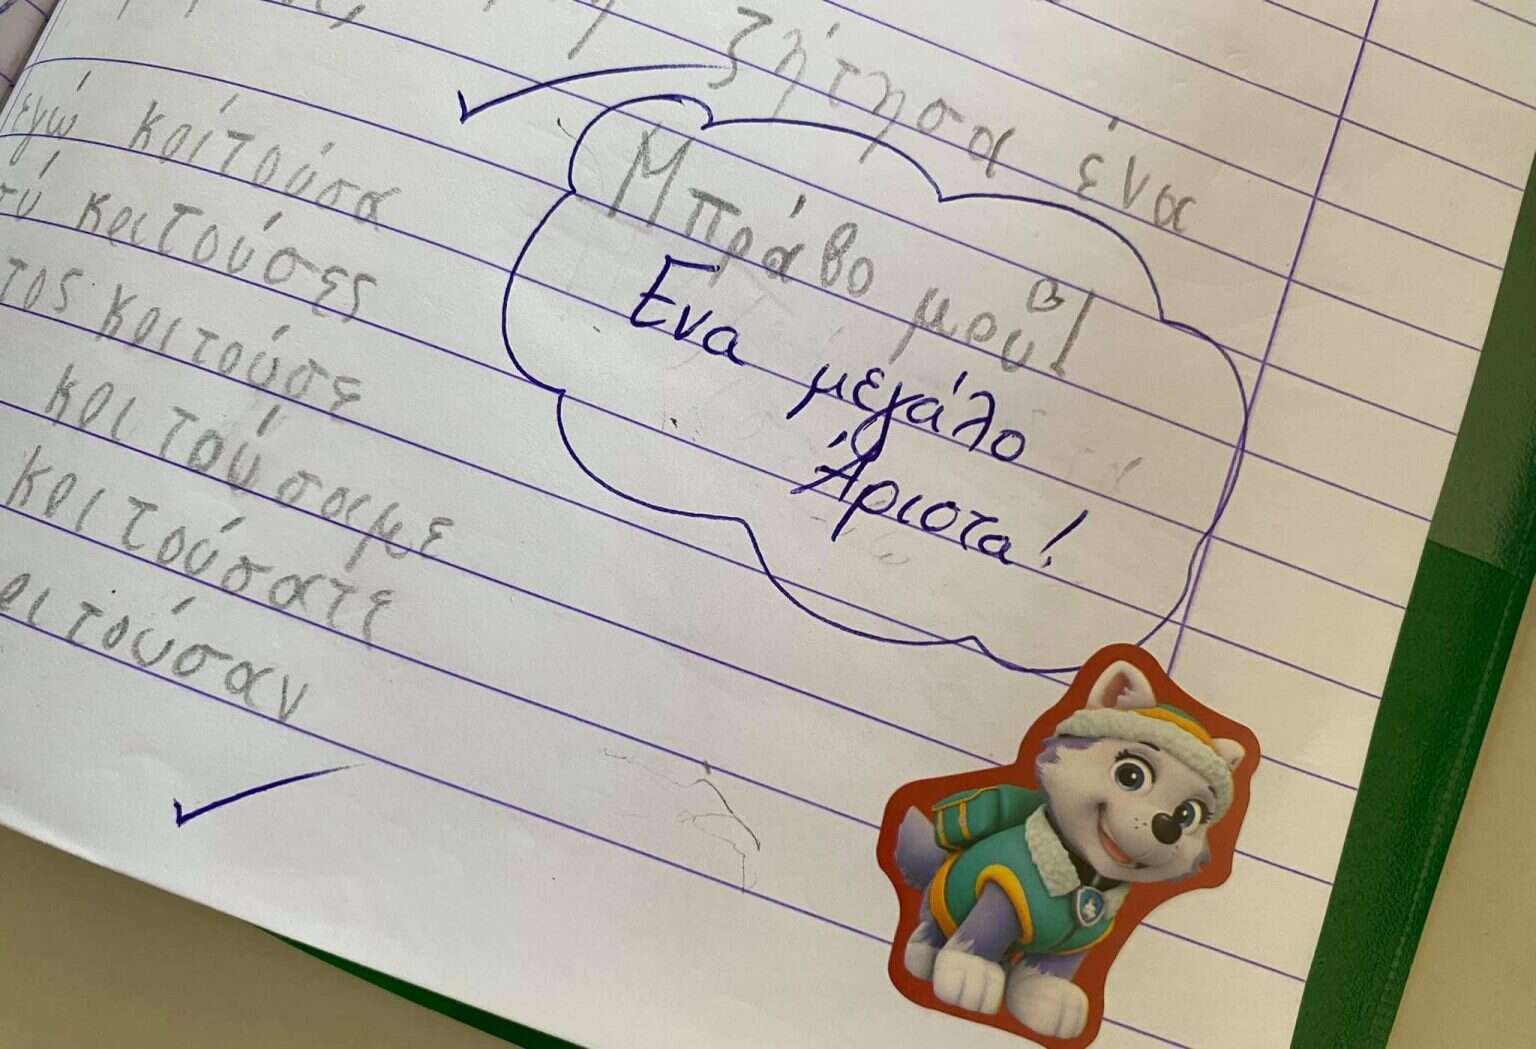 ζήτησα ένα
εγώ κοιτούσα
κοιτούσες
τος κοιτούσε
κοιτούσαμε
κοιτούσατε
οιτούσαν
Μπράβο μου!
Ενα μεγάλο
Άριστα!